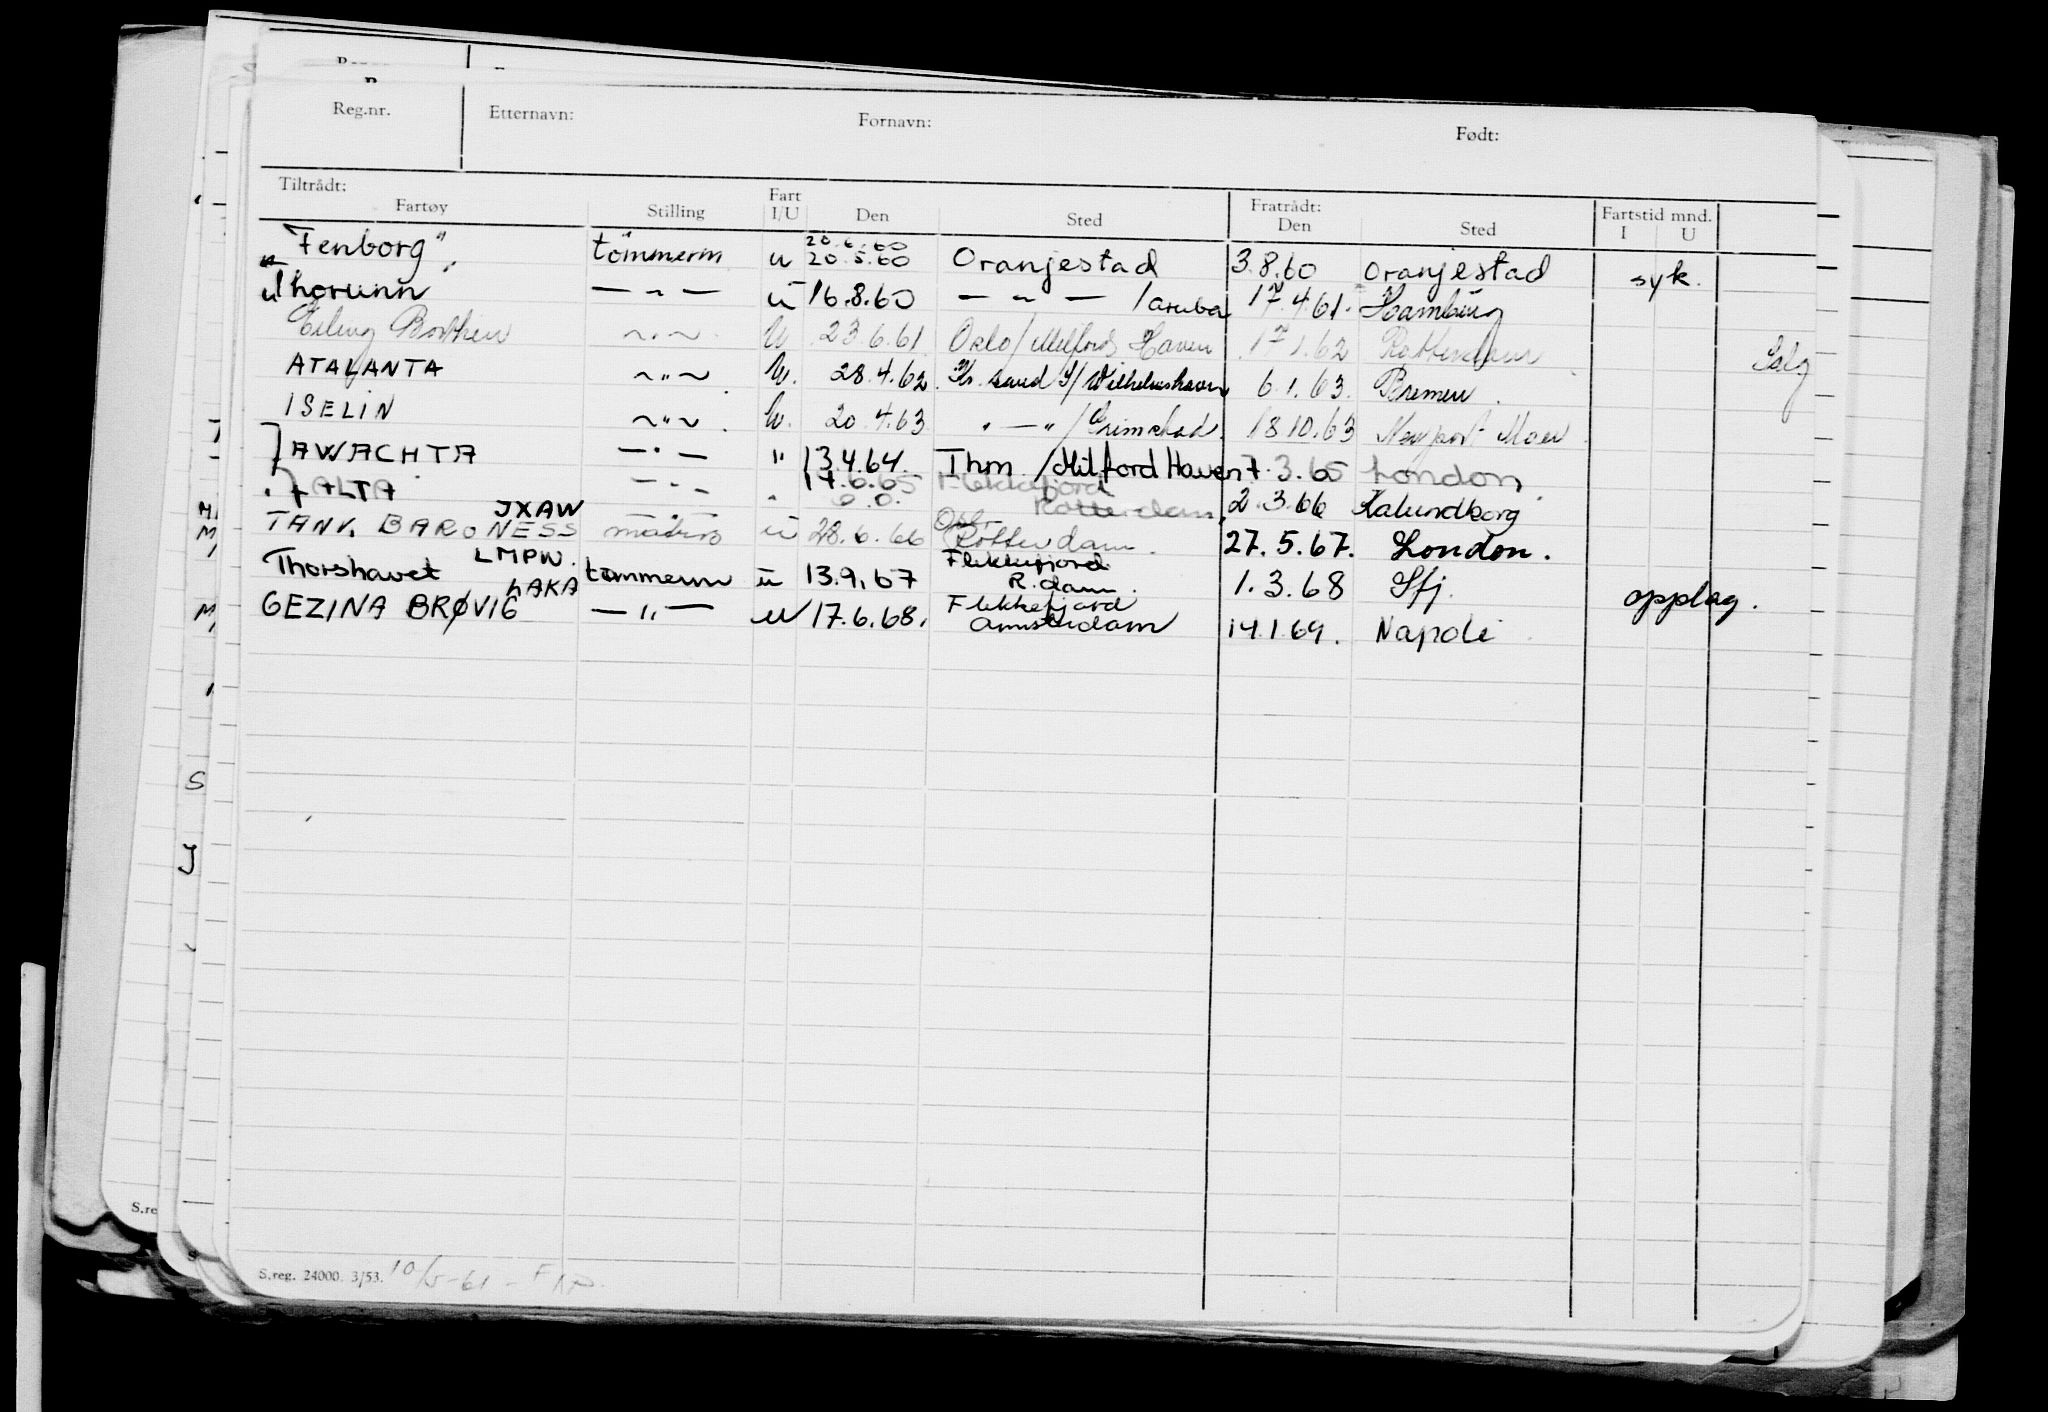 Reg.nr. Etternavn: Fornavn: Født:
Tiltrådt: Fratrådt: Fartstid mnd.
Fartøy Stilling Fart I/U Den Sted Den Sted I U
20.6.60
"Fenborg" tömmerm u 20.5.60 Oranjestad 3.8.60 Oranjestad syk.
Thorunn — " — u 16.8.60 — " — / aruba 17.4.61. Hamburg
Erling Borthen ~ " ~ U 23.6.61 Oslo/Milford Haven 17.1.62 Rotterdam Salg
ATALANTA ~ " ~ U. 28.4.62. Kr. sand S/Wilhelmshaven 6.1.63. Bremen.
ISELIN ~ " ~ U. 20.4.63 " — " /Grimstad. 18.10.63 Newport
AWACHTA — " — " 13.4.64. Thm /Milford Haven 7.3.65 London.
ALTA — " — " 17.6.65 Flekkefjord
Rotterdam. 2.3.66 Kalundborg
JXAW
TANK. BARONESS matros u 28.6.66 Rotterdam. 27.5.67. London.
LMPW. Flekkefjord
Thorshavet tømmerm u 13.9.67 R.dam. 1.3.68 Sfj. opplag.
LAKA Flekkefjord
GEZINA BRØVIG — " — u 17.6.68. Amsterdam 14.1.69. Napoli
S.reg. 24000. 3/53. 10/5-61 -